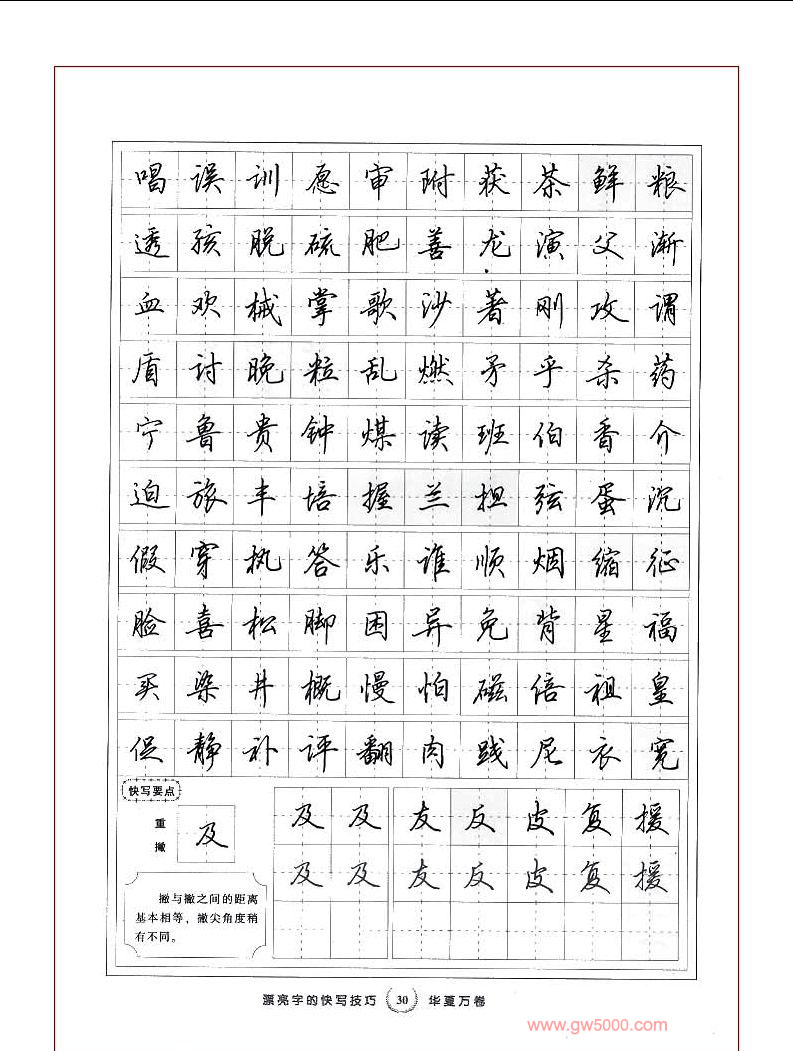 唱误训愿审附获茶鲜粮
透孩脱硫肥善龙演父渐
血欢械掌歌沙著刚攻谓
盾讨晚粒乱燃矛乎杀药
宁鲁贵钟煤读班伯香介
迫旅丰培握兰担弦蛋沉
假穿执答乐谁顺烟缩征
脸喜松脚困异免背星福
买染井概慢怕磁倍祖皇
促静补评翻肉践尼衣宽
快写要点
重撇
及
撇与撇之间的距离
基本相等，撇尖角度稍
有不同。
及及友反皮复援
及及友反皮复援
漂亮字的快写技巧 30 华夏万卷
www.gw5000.com